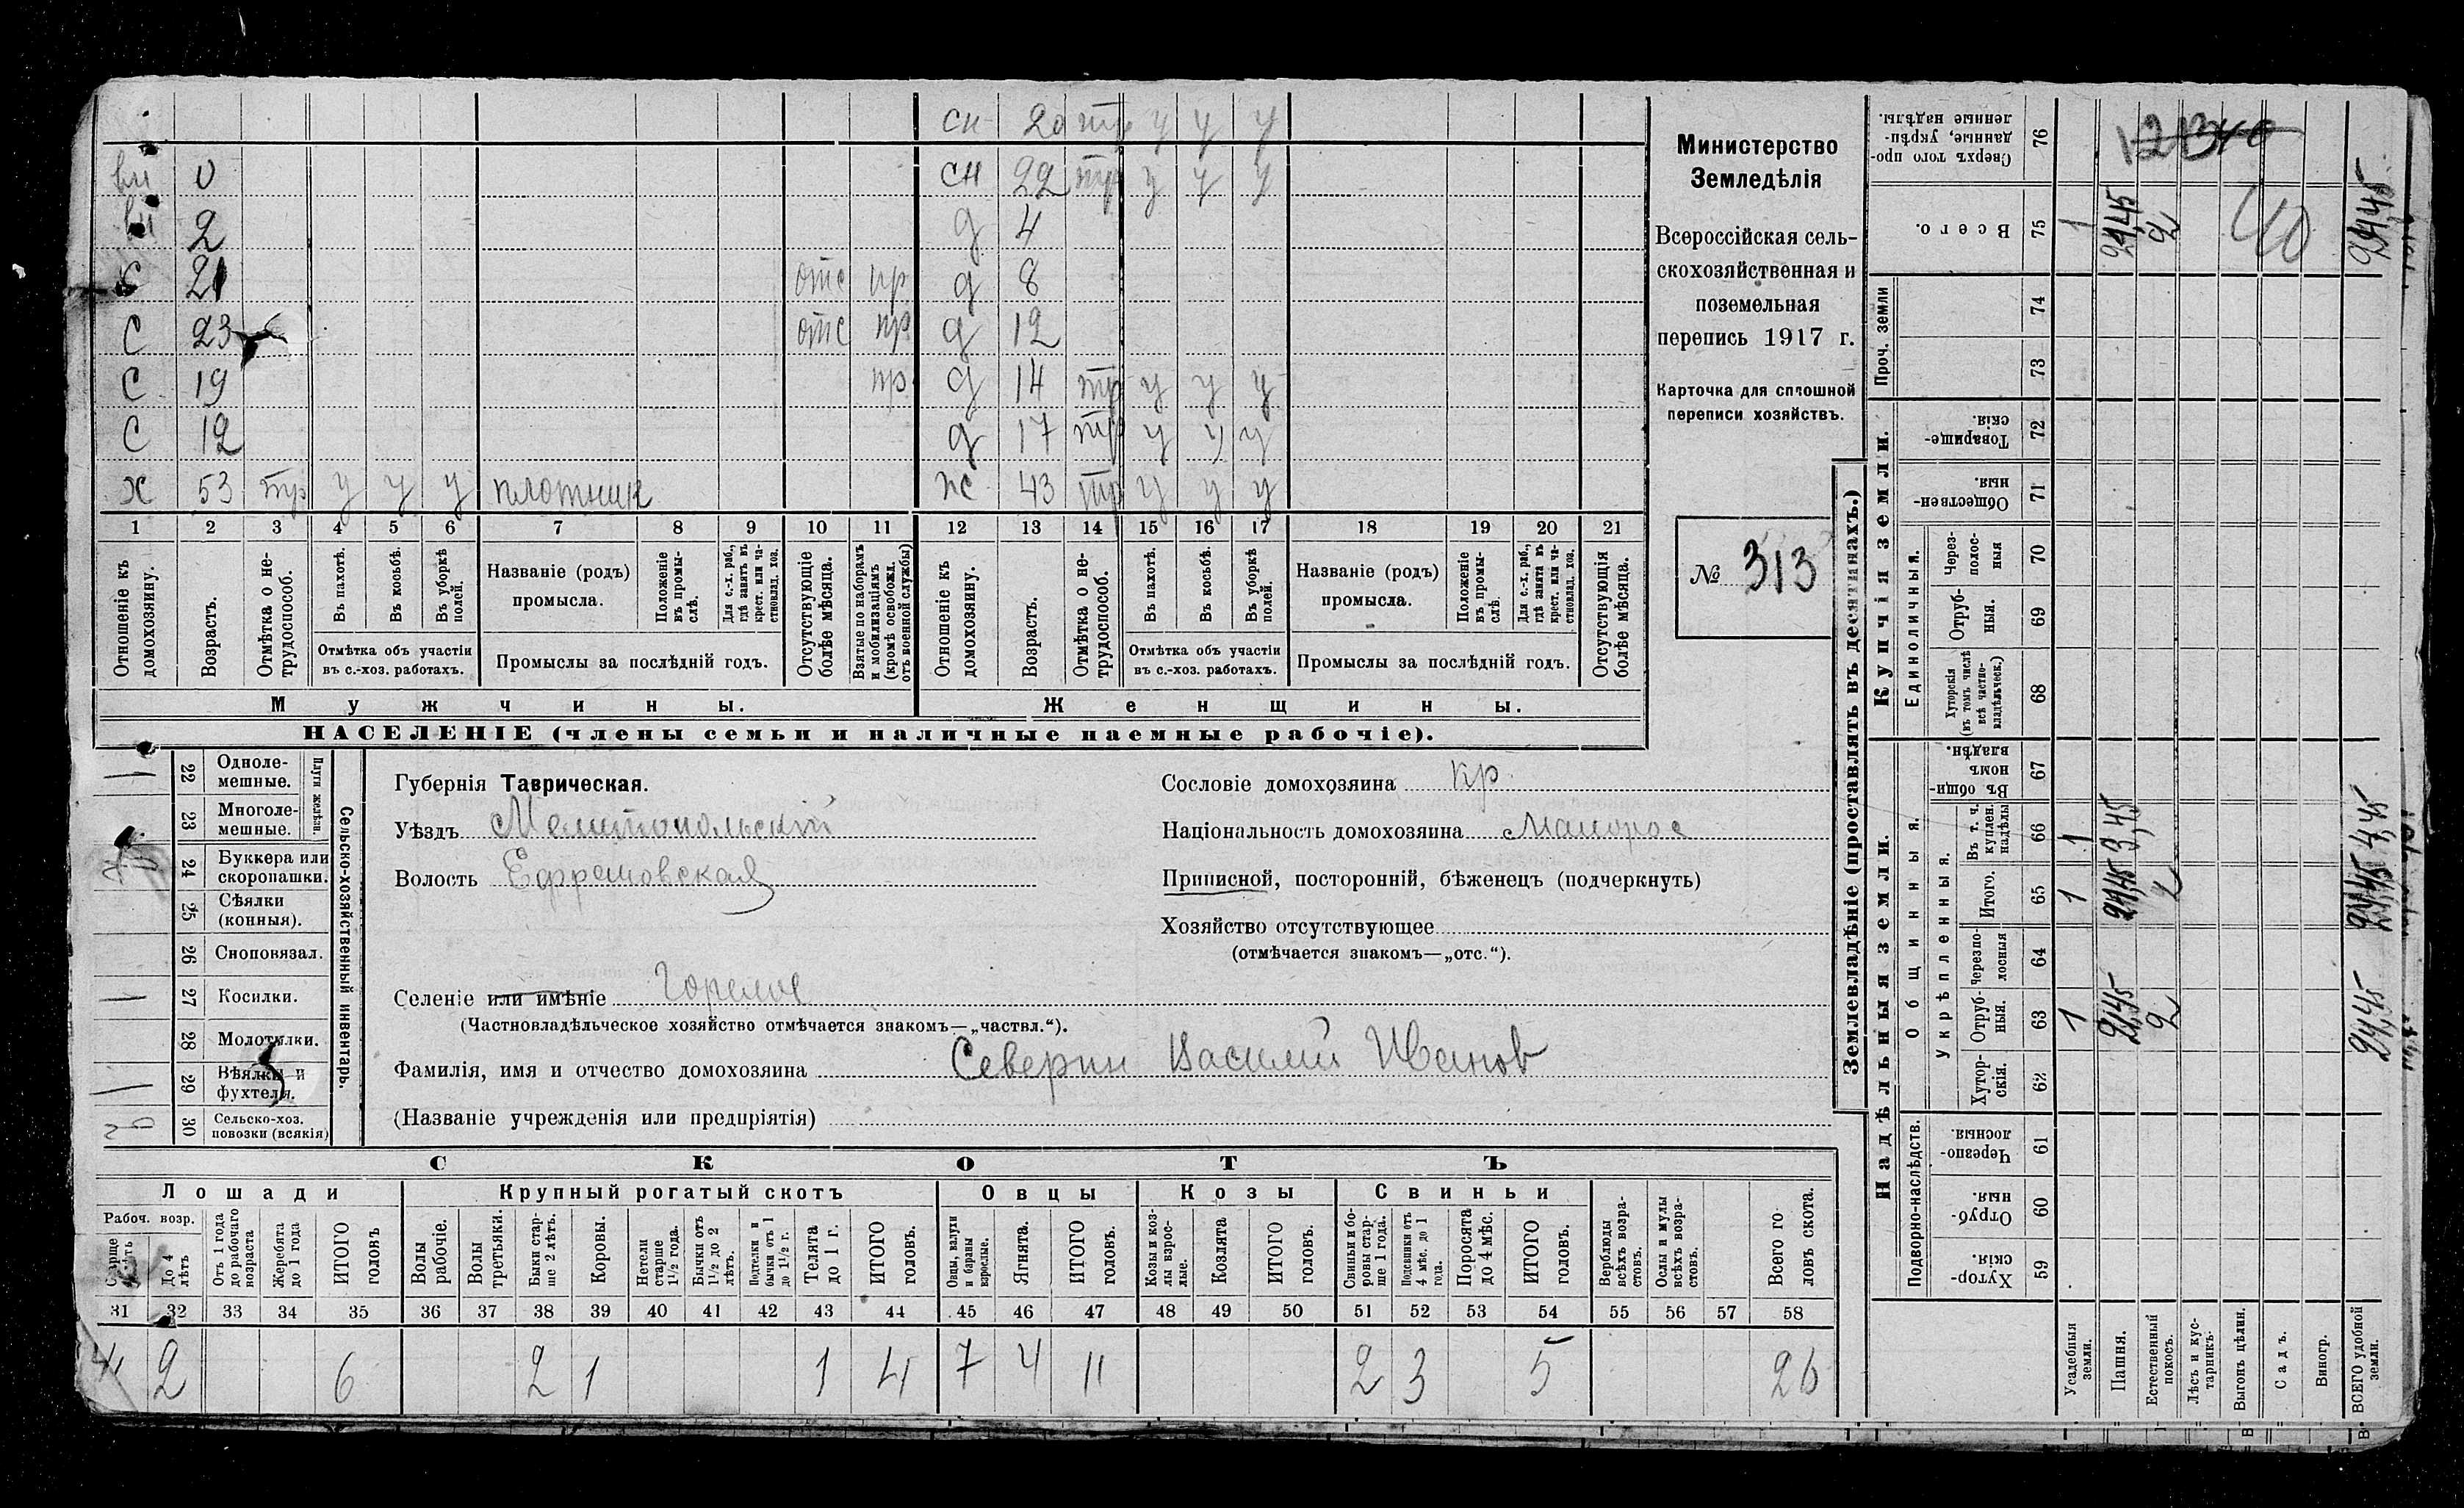 сн 20 тр у у у
вн 0 сн 22 тр у у у
вн 2 д 4
с 21 отс пр д 8
с 23 отс пр д 12
с 19 пр д 14 тр у у у
с 12 д 17 тр у у у
х 53 тр у у у плотник ж 43 тр у у у
1 2 3 4 5 6 7 8 9 10 11 12 13 14 15 16 17 18 19 20 21
Отношеніе къ домохозяину.
Возрастъ.
Отмѣтка о нетрудоспособ.
Въ пахотѣ.
Въ косьбѣ.
Въ уборкѣ полей.
Отмѣтка объ участіи
въ с.-хоз. работахъ.
Названіе (родъ)
промысла.
Положеніе въ промыслѣ.
Для с.-х. раб., гдѣ занятъ въ крест. или частновлад. хоз.
Промыслы за послѣдній годъ.
Отсутствующіе болѣе мѣсяца.
Взятые по наборамъ и мобилизаціямъ (кромѣ освобожд. отъ военной службы)
Отношеніе къ домохозяину.
Возрастъ.
Отмѣтка о нетрудоспособ.
Въ пахотѣ.
Въ косьбѣ.
Въ уборкѣ полей.
Отмѣтка объ участіи
въ с.-хоз. работахъ.
Названіе (родъ)
промысла.
Положеніе въ промыслѣ.
Для с.-х. раб., гдѣ занята въ крест. или частновлад. хоз.
Промыслы за послѣдній годъ.
Отсутствующія болѣе мѣсяца.
Мужчины. Женщины.
НАСЕЛЕНІЕ (члены семьи и наличные наемные рабочіе).
Министерство
Земледѣлія
Всероссійская сель-
скохозяйственная и
поземельная
перепись 1917 г.
Карточка для сплошной
переписи хозяйствъ.
№ 313
Сельско-хозяйственный инвентарь.
Плуги желѣзн.
1 22 Однолемешные.
23 Многолемешные.
24 Буккера или скоропашки.
25 Сѣялки (конныя).
26 Сноповязал.
1 27 Косилки.
28 Молотилки.
1 29 Вѣялки и фухтеля.
30 Сельско-хоз. повозки (всякія)
Губернія Таврическая.
Уѣздъ Мелитопольский
Волость Ефремовская
Сословіе домохозяина кр.
Національность домохозяина Малорос
Приписной, посторонній, бѣженецъ (подчеркнуть)
Хозяйство отсутствующее
(отмѣчается знакомъ—„отс.“).
Селеніе или имѣніе Горелое
(Частновладѣльческое хозяйство отмѣчается знакомъ—„частвл.“).
Фамилія, имя и отчество домохозяина Северин Василий Иванов
(Названіе учрежденія или предпріятія)
СКОТЪ
Лошади Крупный рогатый скотъ Овцы Козы Свиньи
Рабоч. возр.
Старше 4 лѣтъ
До 4 лѣтъ
Отъ 1 года до рабочаго возраста
Жеребята до 1 года
ИТОГО головъ
Волы рабочіе.
Волы третьяки.
Быки старше 2 лѣтъ.
Коровы.
Нетели старше 1 1/2 года.
Бычки отъ 1 1/2 до 2 лѣтъ.
Подтелки и бычки отъ 1 до 1 1/2 г.
Телята до 1 г.
ИТОГО головъ.
Овцы, валухи и бараны взрослые.
Ягнята.
ИТОГО головъ.
Козы и козлы взрослые.
Козлята
ИТОГО головъ.
Свиньи и боровы старше 1 года.
Подсвинки отъ 4 мѣс. до 1 года.
Поросята до 4 мѣс.
ИТОГО головъ.
Верблюды всѣхъ возрастовъ.
Ослы и мулы всѣхъ возрастовъ.
Всего головъ скота.
31 32 33 34 35 36 37 38 39 40 41 42 43 44 45 46 47 48 49 50 51 52 53 54 55 56 57 58
4 2 6 2 1 1 4 7 4 11 2 3 5 26
Землевладѣніе (проставлять въ десятинахъ.)
Надѣльныя земли. Купчія земли. Проч. земли
Подворно-наслѣдств. Общинныя. Укрѣпленныя. Единоличныя.
59 Хуторскія.
60 Отрубныя.
61 Черезполосныя.
62 Хуторскія.
63 Отрубныя.
64 Черезполосныя
65 Итого.
66 Въ т. ч. куплен. надѣлы
67 Въ общинномъ владѣн.
68 Хуторскія (въ томъ числѣ всѣ частновладѣльческ.)
69 Отрубныя.
70 Черезполосныя
71 Общественныя.
72 Товарищескія.
73
74
75 Всего.
76 Сверхъ того проданные, укрѣпленные надѣлы.
Усадебныя земли. 1 1 1 1
Пашня. 21,45 21,45 3,45 21,45
Естественный покосъ. 2 2 2
Лѣсъ и кустарникъ.
Выгонъ цѣлин.
Садъ.
Виногр.
ВСЕГО удобной земли. 24,45 24,45 4,45 24,45
40